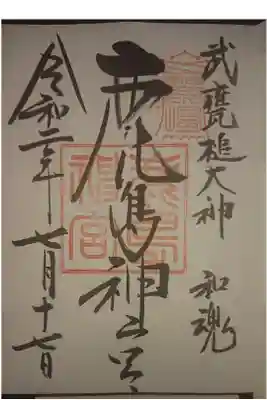 武甕槌大神 和魂
鹿島神宮
令和二年七月十七日